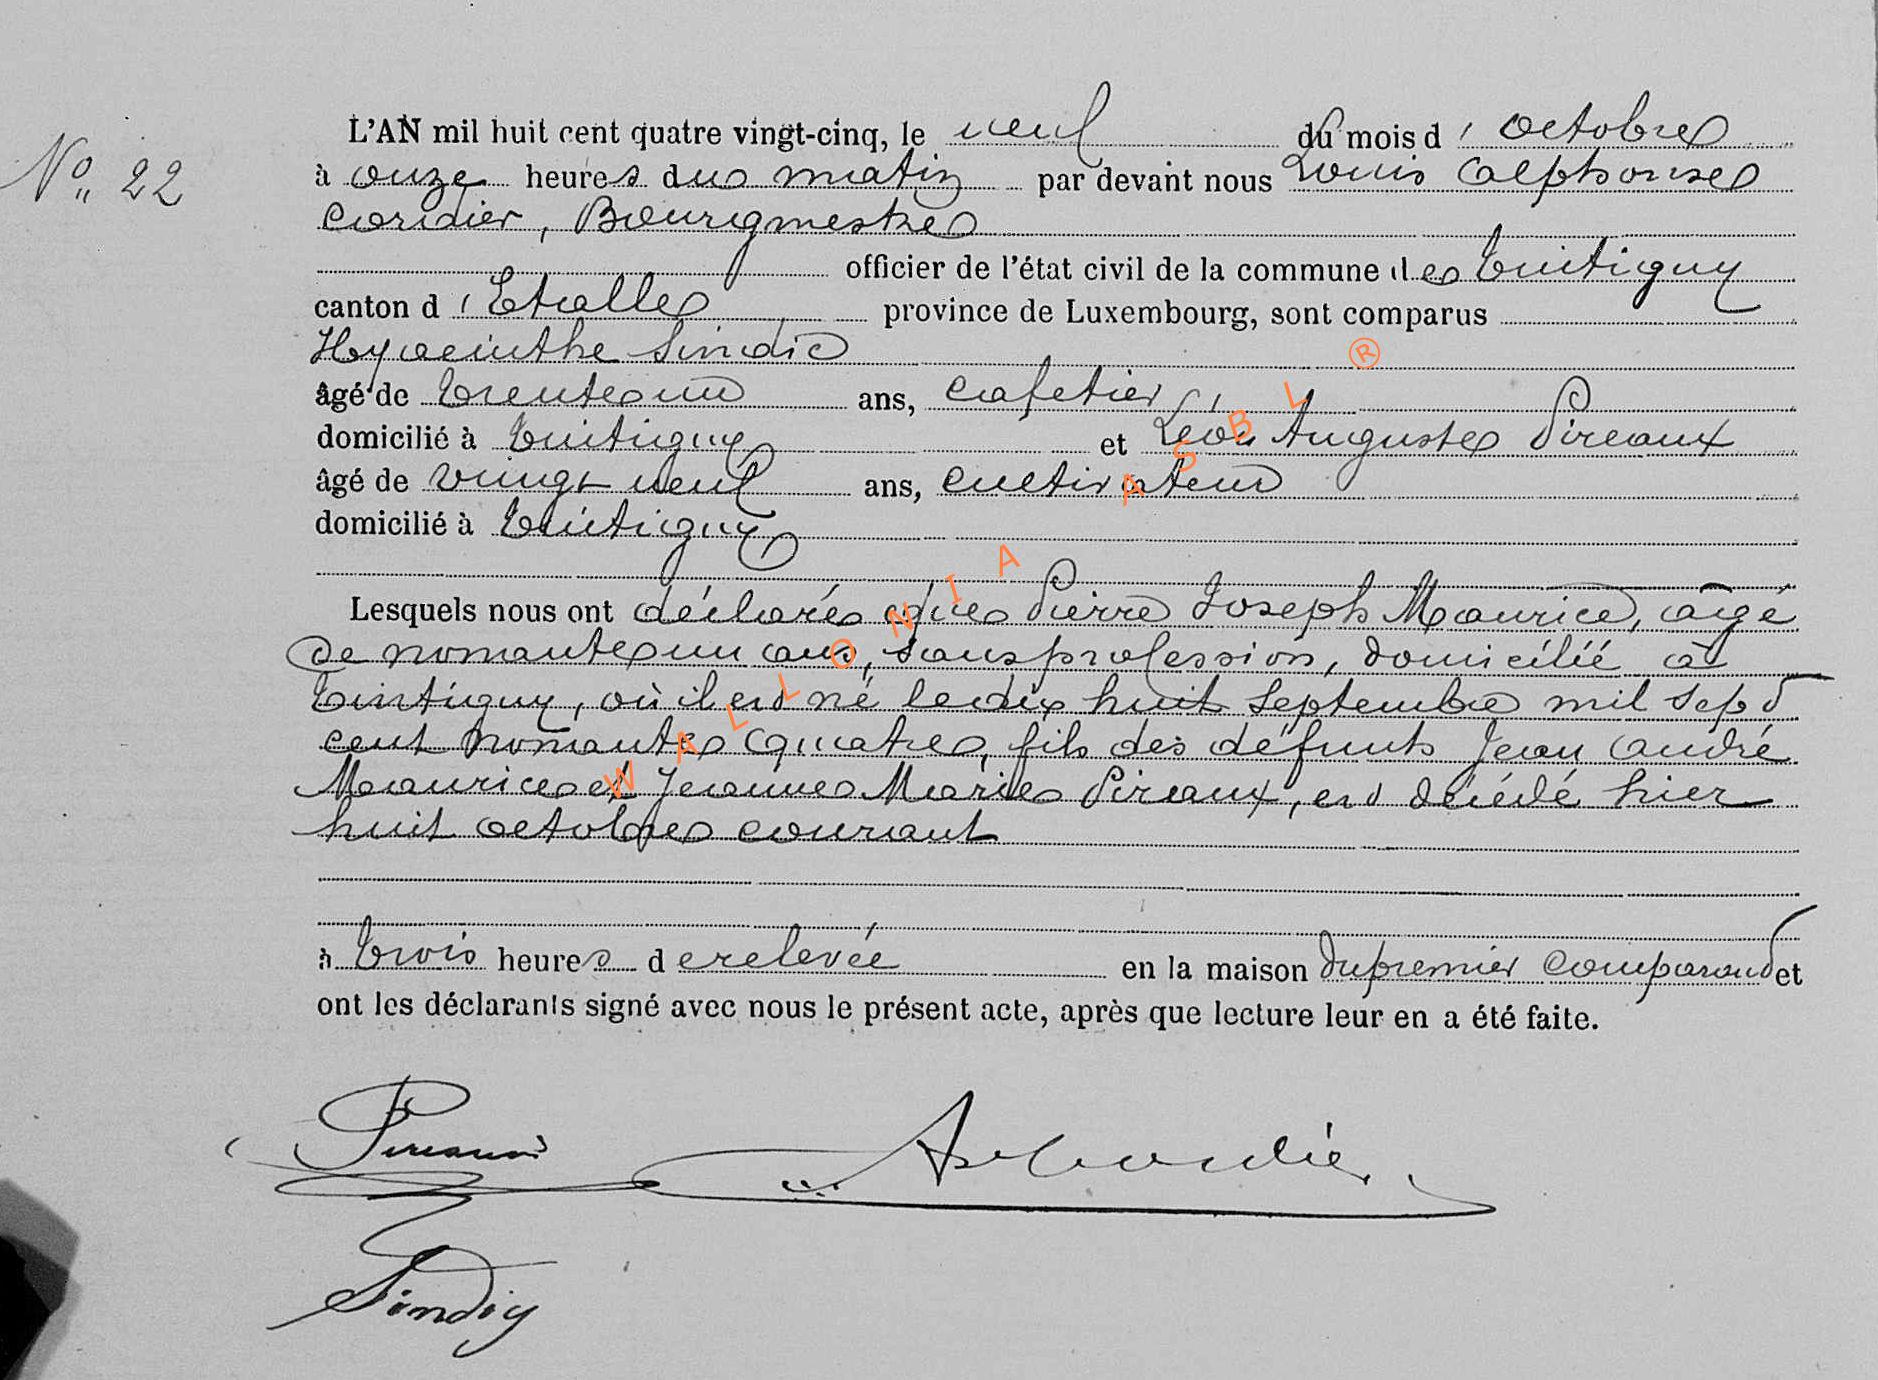 N° 22
L'AN mil huit cent quatre vingt-cinq, le neuf du mois d'octobre
à onze heures du matin par devant nous Louis Alphonse
Cordier, Bourgmestre
officier de l'état civil de la commune de Tintigny
canton d'Etalle province de Luxembourg, sont comparus
Hyacinthe Sindic
âgé de trente un ans, cafetier,
domicilié à Tintigny et Léon Auguste Pireaux
âgé de vingt neuf ans, cultivateur
domicilié à Tintigny
Lesquels nous ont déclaré que Pierre Joseph Maurice, âgé
de nonante un ans, sans profession, domicilié à
Tintigny, où il est né le dix huit Septembre mil sept
cent nonante quatre, fils des défunts Jean André
Maurice et Jeanne Marie Pireaux, est décédé hier
huit octobre courant
à trois heures de relevée en la maison du premier comparant et
ont les déclarants signé avec nous le présent acte, après que lecture leur en a été faite.
Pireaux
Sindic
WALLONIA ASBL ®